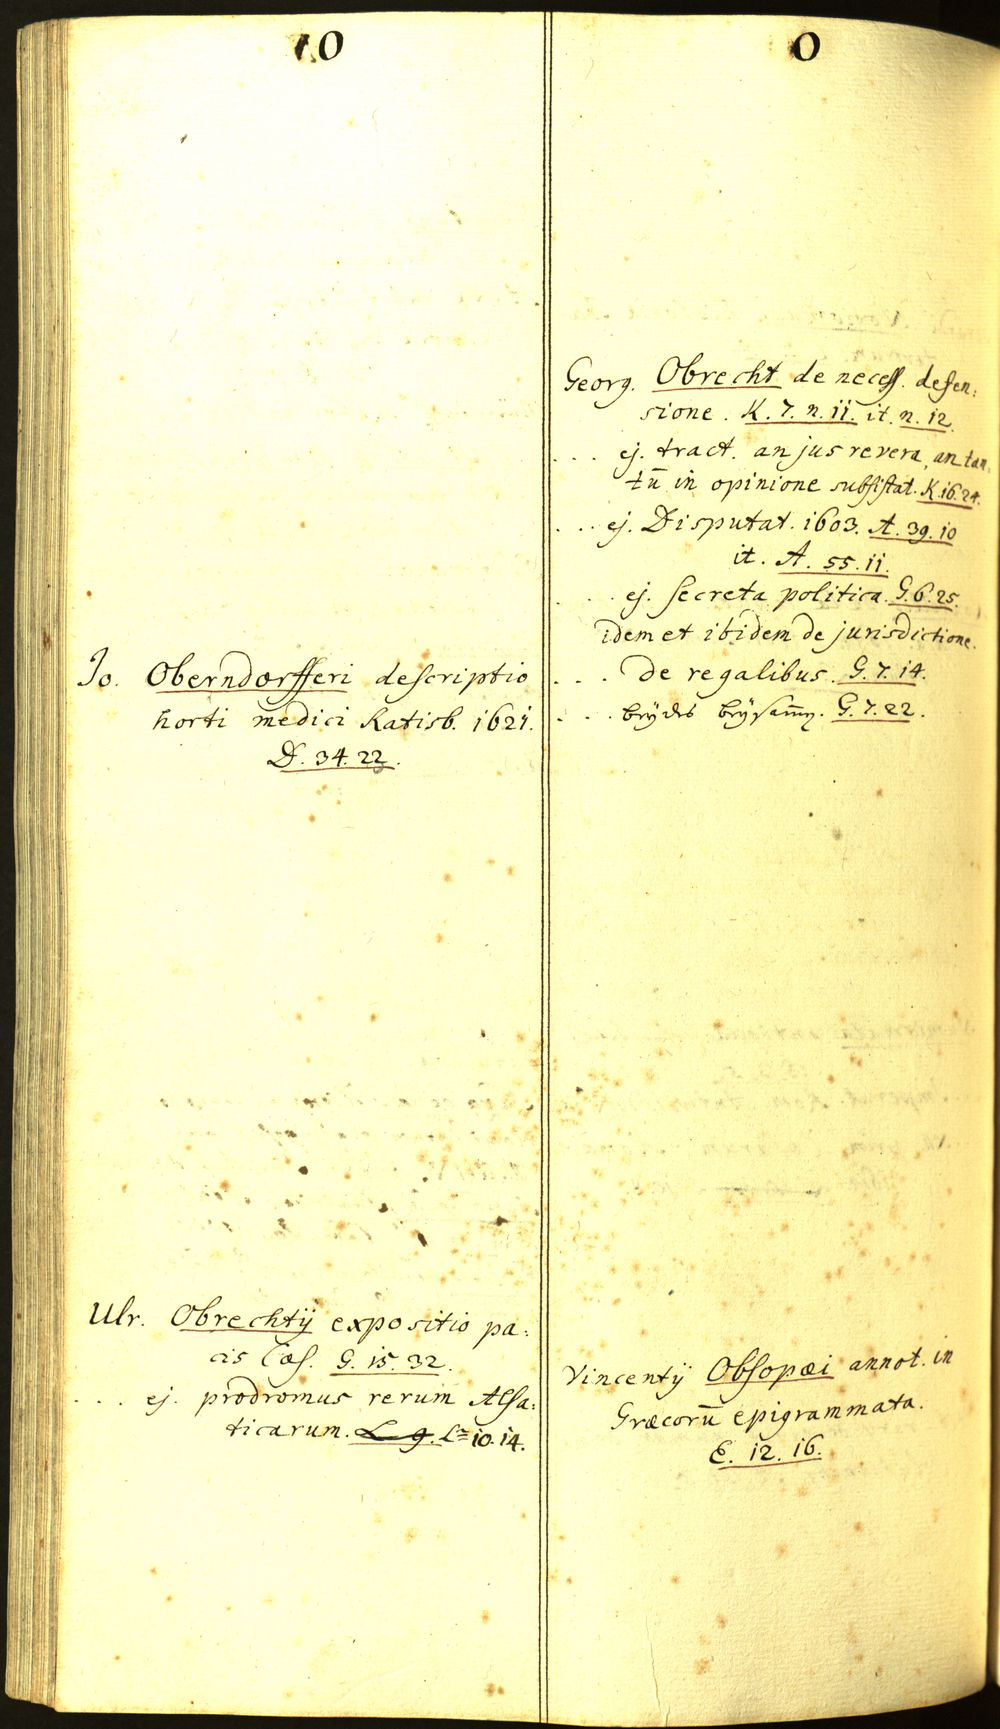 O
Jo. Oberndorfferi descriptio
horti medici Ratisb. 1621.
D. 34. 22.
Ulr. Obrechtij expositio pa:
cis Cæs. G. 15. 32.
. . . ej. prodromus rerum Alsa:
ticarum. L. 9. L= 10. 14.
O
Georg. Obrecht de necess. defen:
sione. K. 7. n. 11. it. n. 12.
. . . ej. tract. an jus revera, an tan
tū in opinione subsistat. K. 16. 24.
. . . ej. Disputat. 1603. A. 39. 10
it. A. 55. 11.
. . . ej. secreta politica. G. 6. 25.
idem et ibidem de jurisdictione.
. . . De regalibus. G. 7. 14.
. . . G. 7. 22.
Vincentij Obsopæi annot. in
Græcorū epigrammata.
E. 12. 16.